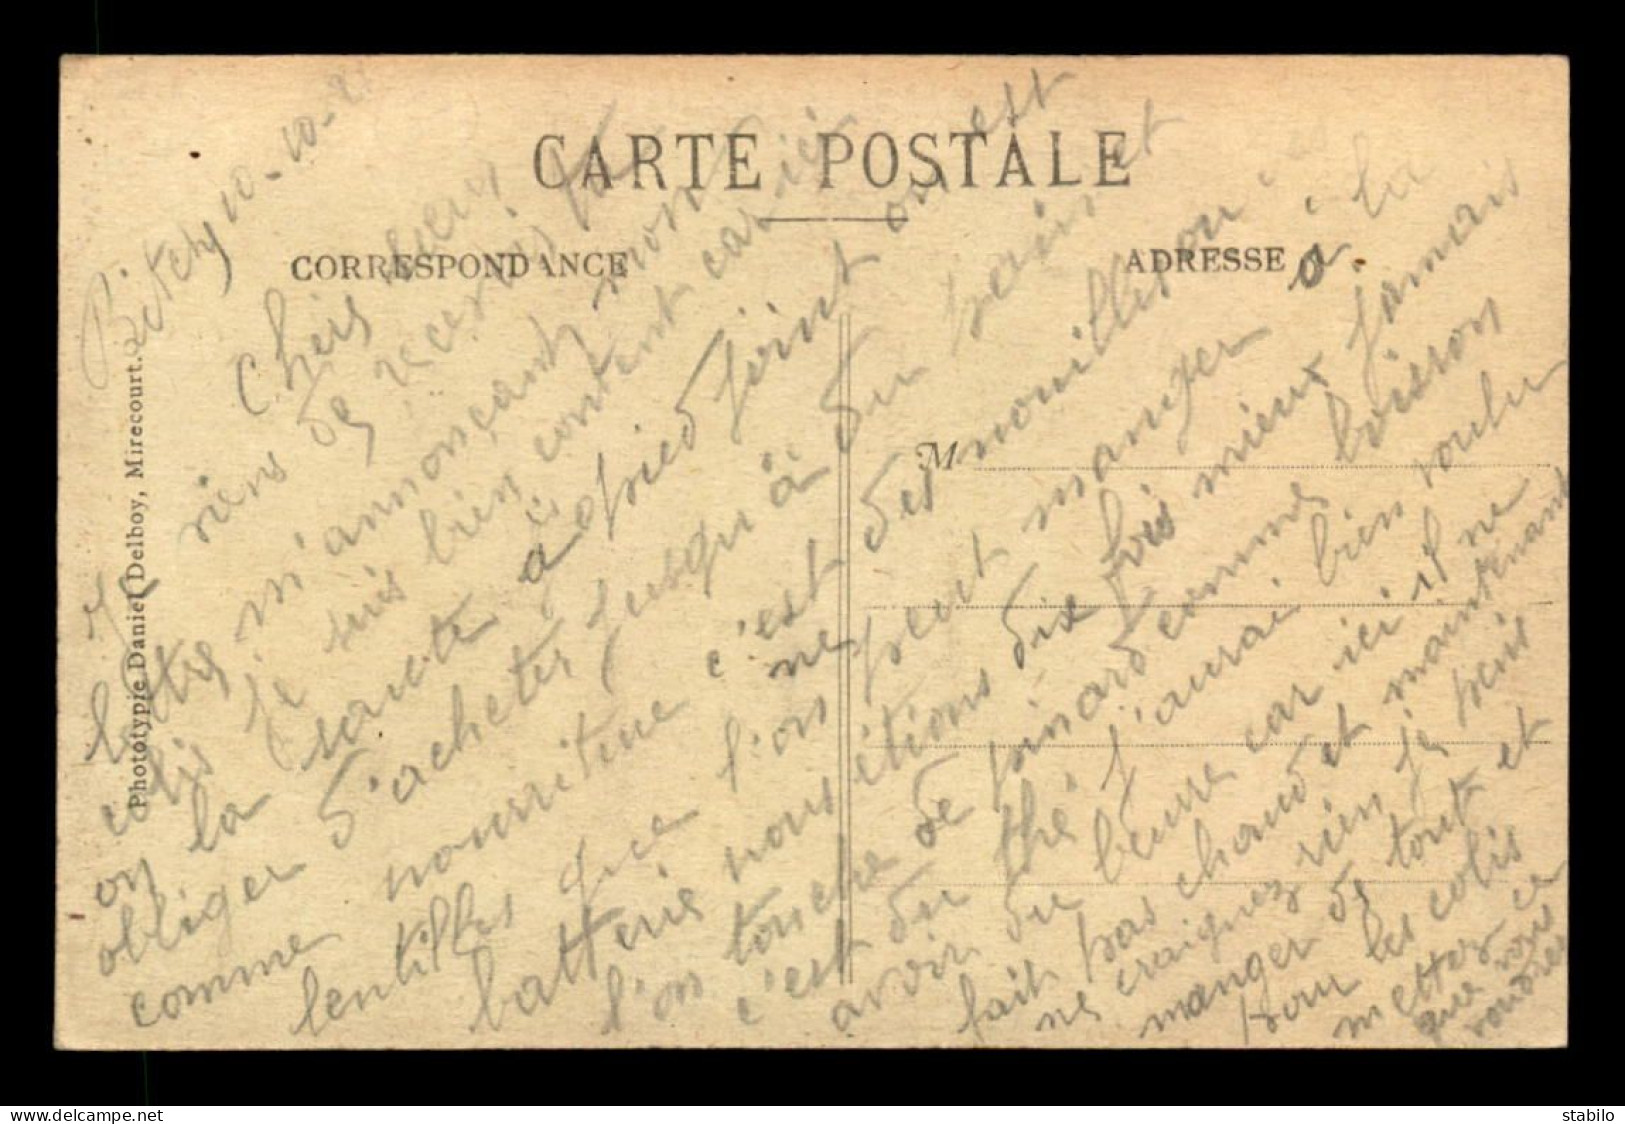 CARTE POSTALE
CORRESPONDANCE
ADRESSE
M
Phototypie Daniel Delboy, Mirecourt.
Bitchy 10-10-2
Chers
Je viens de recevoir ta
lettre m'annonçant mon
colis je suis bien content car ici
on la saute à pied joint on est
obliger d'acheter jusqu'à du pain et
comme nourriture c'est des nouilles ou
lentilles que l'on ne peut manger à la
batterie nous étions dix fois mieux jamais
l'on touche de pinard comme boisson
c'est du thé j'aurai bien voulu
avoir du beurre car ici il ne
fait pas chaud et maintenant
ne craignez rien je puis
manger de tout et
pour les colis
mettez ce
que vous
voudrez